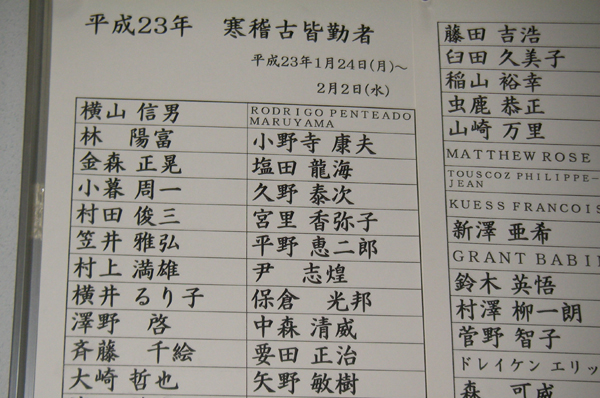 平成23年　寒稽古皆勤者
平成23年1月24日(月)～
2月2日(水)
横山 信男
林　陽富
金森 正晃
小暮 周一
村田 俊三
笠井 雅弘
村上 満雄
横井 るり子
澤野　啓
斉藤　千絵
大崎 哲也
RODRIGO PENTEADO
MARUYAMA
小野寺 康夫
塩田 龍海
久野 泰次
宮里 香弥子
平野 恵二郎
尹　志煌
保倉　光邦
中森 清威
要田 正治
矢野 敏樹
藤田 吉浩
臼田 久美子
稲山 裕幸
虫鹿 恭正
山崎 万里
MATTHEW ROSE
TOUSCOZ PHILIPPE-
JEAN
KUESS FRANCOIS
新澤 亜希
GRANT BABIN
鈴木 英悟
村澤 柳一朗
菅野 智子
ドレイケン エリッ
森　可威